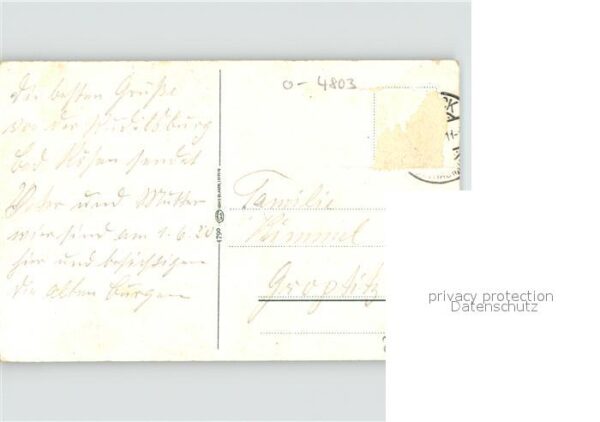 o - 4803
Die besten Grüße
von der Rudelsburg
Bad Kösen sendet
Vater und Mutter
wir sind am 1.6.20
hier und besichtigen
die alten Burgen
Familie
Himmel
Groptitz
4790
privacy protection
Datenschutz